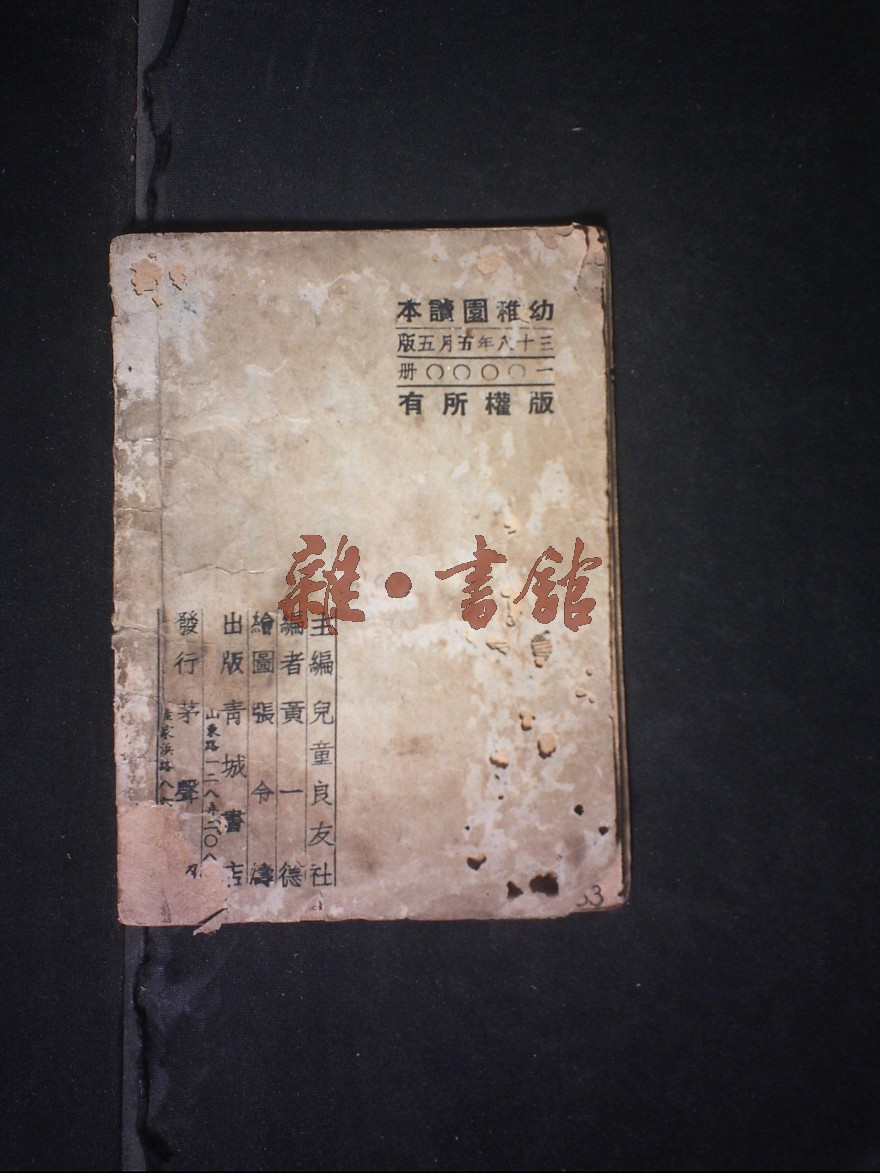 幼稚園讀本
三十八年五月五版
一〇〇〇〇册
版權所有
雜·書館
主編兒童良友社
編者黃一德
繪圖張令濤
出版青城書店
山東路一二八弄二〇八
發行茅聲
家浜路八
33